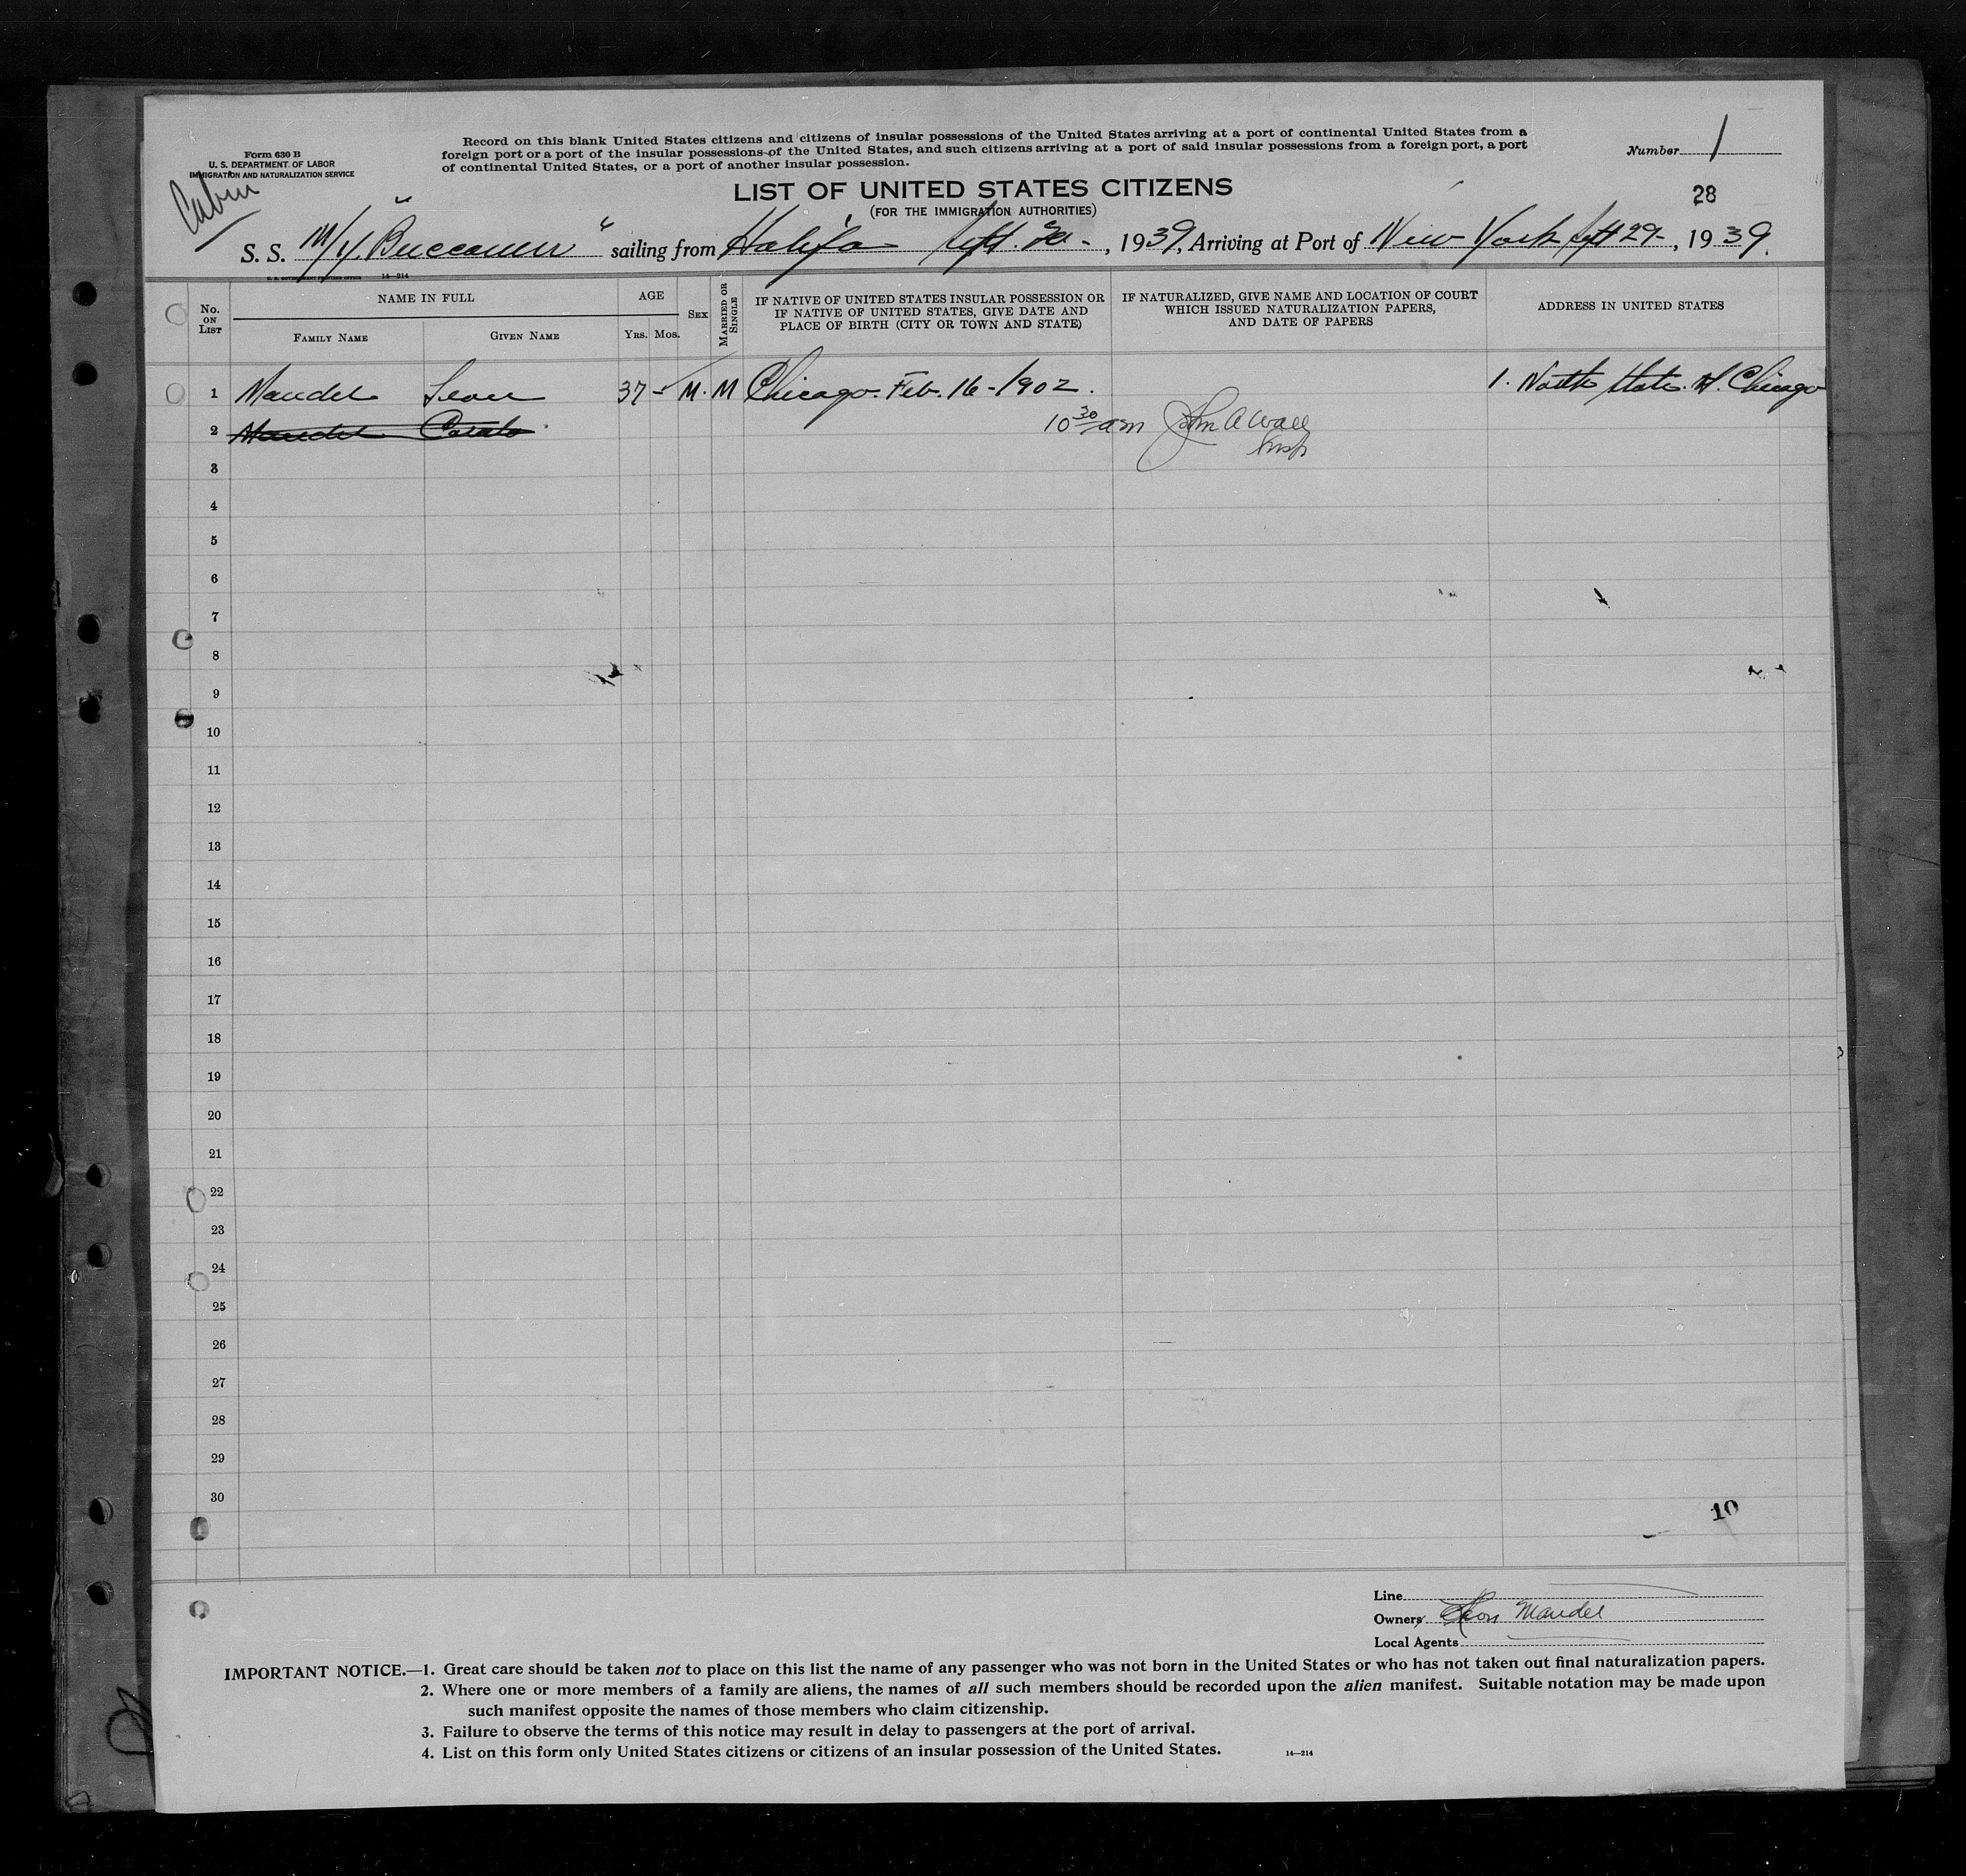 Form 630 B
U. S. DEPARTMENT OF LABOR
IMMIGRATION AND NATURALIZATION SERVICE
Cabin
Record on this blank United States citizens and citizens of insular possessions of the United States arriving at a port of continental United States from a
foreign port or a port of the insular possessions of the United States, and such citizens arriving at a port of said insular possessions from a foreign port, a port
of continental United States, or a port of another insular possession.
Number 1
LIST OF UNITED STATES CITIZENS
(FOR THE IMMIGRATION AUTHORITIES)
28
S. S. M/Y. "Buccaneer" sailing from Halifa Sept. , 1939, Arriving at Port of New York Sept 29-, 1939.
U. S. GOVERNMENT PRINTING OFFICE 14—214
No. ON LIST
NAME IN FULL
FAMILY NAME GIVEN NAME
AGE
YRS. MOS.
SEX
MARRIED OR SINGLE
IF NATIVE OF UNITED STATES INSULAR POSSESSION OR
IF NATIVE OF UNITED STATES, GIVE DATE AND
PLACE OF BIRTH (CITY OR TOWN AND STATE)
IF NATURALIZED, GIVE NAME AND LOCATION OF COURT
WHICH ISSUED NATURALIZATION PAPERS,
AND DATE OF PAPERS
ADDRESS IN UNITED STATES
1 Mandel Leon 37 - M. M Chicago. Feb. 16-1902. 1. North State. St. Chicago
2 Mandel Carola
10 30 am John A Wall
Insp
3
4
5
6
7
8
9
10
11
12
13
14
15
16
17
18
19
20
21
22
23
24
25
26
27
28
29
30
10
Line
Owners Leon Mandel
Local Agents
IMPORTANT NOTICE.—1. Great care should be taken not to place on this list the name of any passenger who was not born in the United States or who has not taken out final naturalization papers.
2. Where one or more members of a family are aliens, the names of all such members should be recorded upon the alien manifest. Suitable notation may be made upon
such manifest opposite the names of those members who claim citizenship.
3. Failure to observe the terms of this notice may result in delay to passengers at the port of arrival.
4. List on this form only United States citizens or citizens of an insular possession of the United States. 14—214